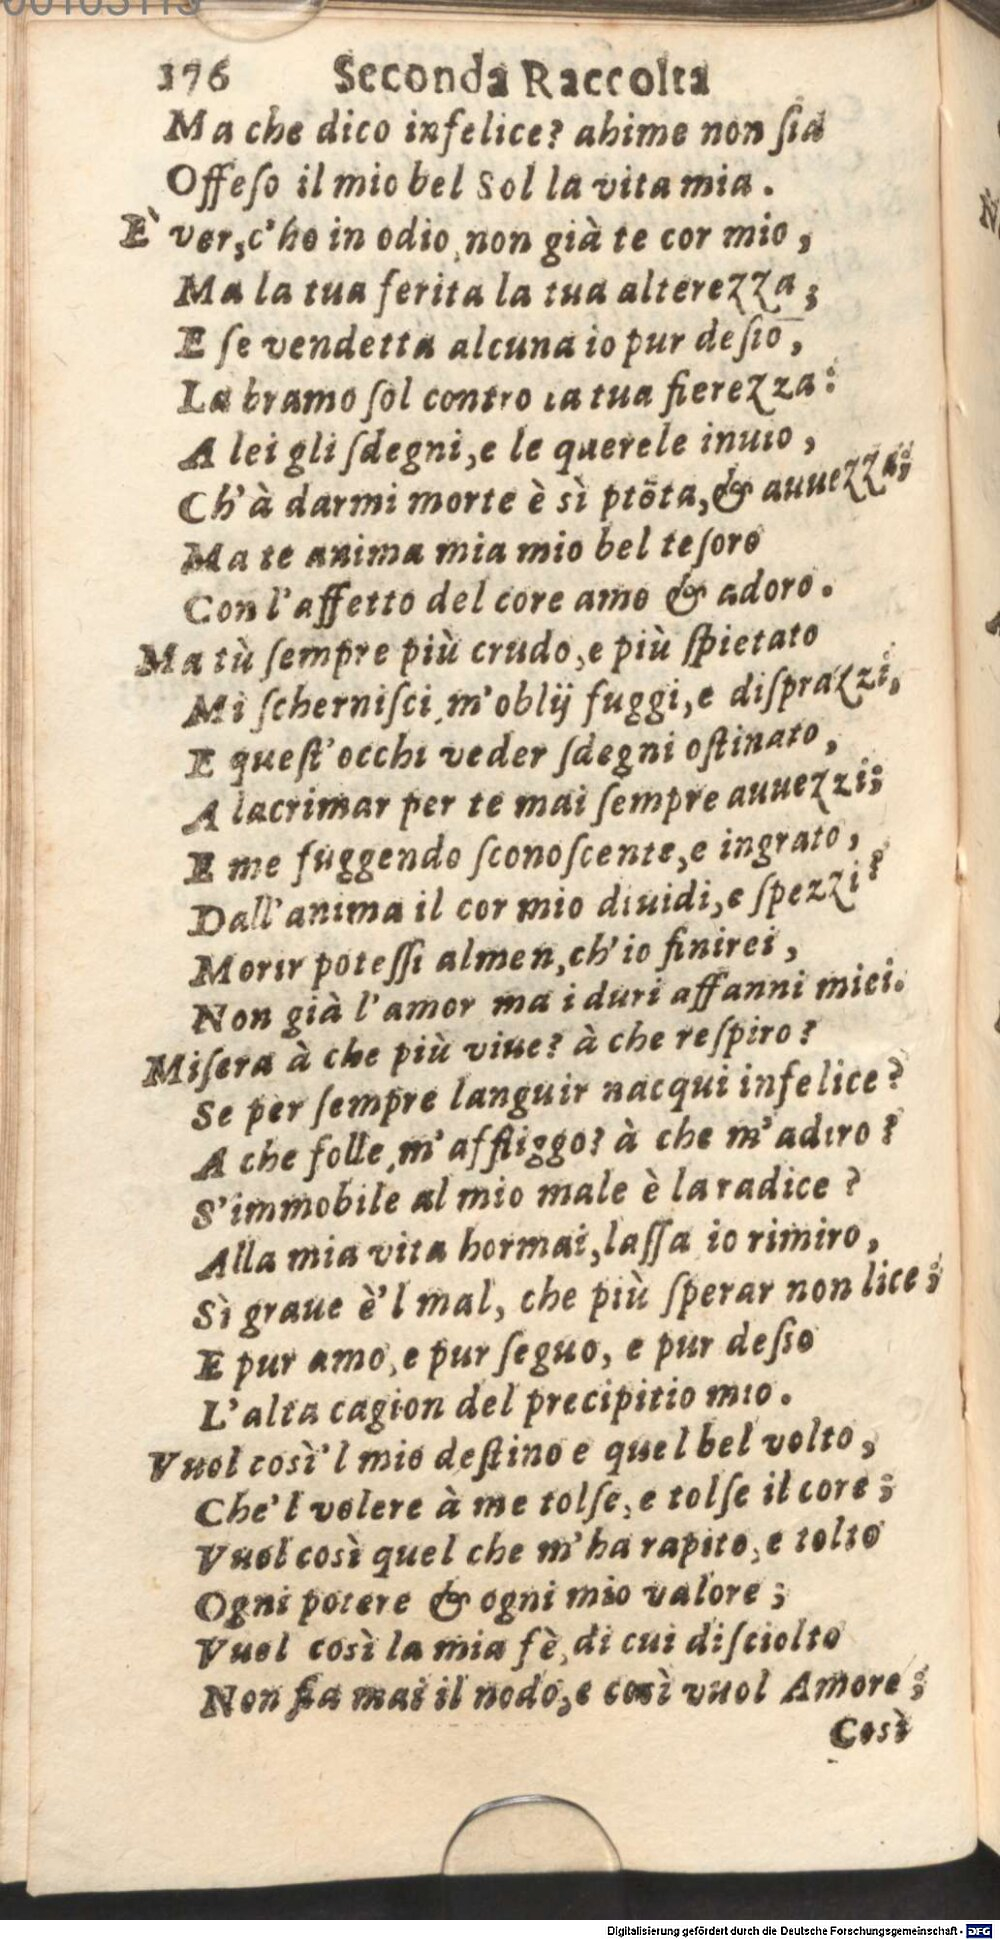 176 Seconda Raccolta
Ma che dico infelice? ahime non ſia
Offeſo il mio bel Sol la vita mia.
È ver, c'ho in odio, non già te cor mio,
Ma la tua ferita la tua alterezza;
E ſe vendetta alcuna io pur deſio,
La bramo ſol contro la tua fierezza:
A lei gli ſdegni, e le querele inuio,
Ch'à darmi morte è sì ptõta, & auuezza;
Ma te anima mia mio bel teſoro
Con l'affetto del core amo & adoro.
Ma tù ſempre più crudo, e più ſpietato
Mi ſcherniſci, m'oblij fuggi, e diſprazzi,
E queſt'occhi veder ſdegni oſtinato,
A lacrimar per te mai ſempre auuezzi;
E me fuggendo ſconoſcente, e ingrato,
Dall'anima il cor mio diuidi, e ſpezzi?
Morir poteſſi almen, ch'io finirei,
Non già l'amor ma i duri affanni miei.
Miſera à che più viue? à che reſpiro?
Se per ſempre languir nacqui infelice?
A che folle, m'affliggo? à che m'adiro?
S'immobile al mio male è la radice?
Alla mia vita hormai, laſſa io rimiro,
Sì graue è'l mal, che più ſperar non lice;
E pur amo, e pur ſeguo, e pur deſio
L'alta cagion del precipitio mio.
Vuol così'l mio deſtino e quel bel volto,
Che'l volere à me tolſe, e tolſe il core;
Vuol così quel che m'ha rapito, e tolto
Ogni potere & ogni mio valore;
Vuol così la mia fè, di cui diſciolto
Non fia mai il nodo, e così vuol Amore;
Così
Digitalisierung gefördert durch die Deutsche Forschungsgemeinschaft - DFG